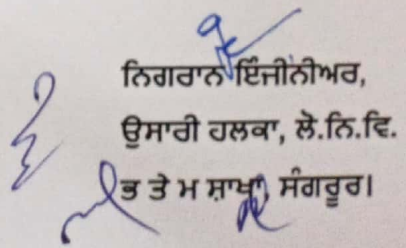 ਨਿਗਰਾਨ ਇੰਜੀਨੀਅਰ,
ਉਸਾਰੀ ਹਲਕਾ, ਲੋ.ਨਿ.ਵਿ.
ਭ ਤੇ ਮ ਸ਼ਾਖਾ, ਸੰਗਰੂਰ।